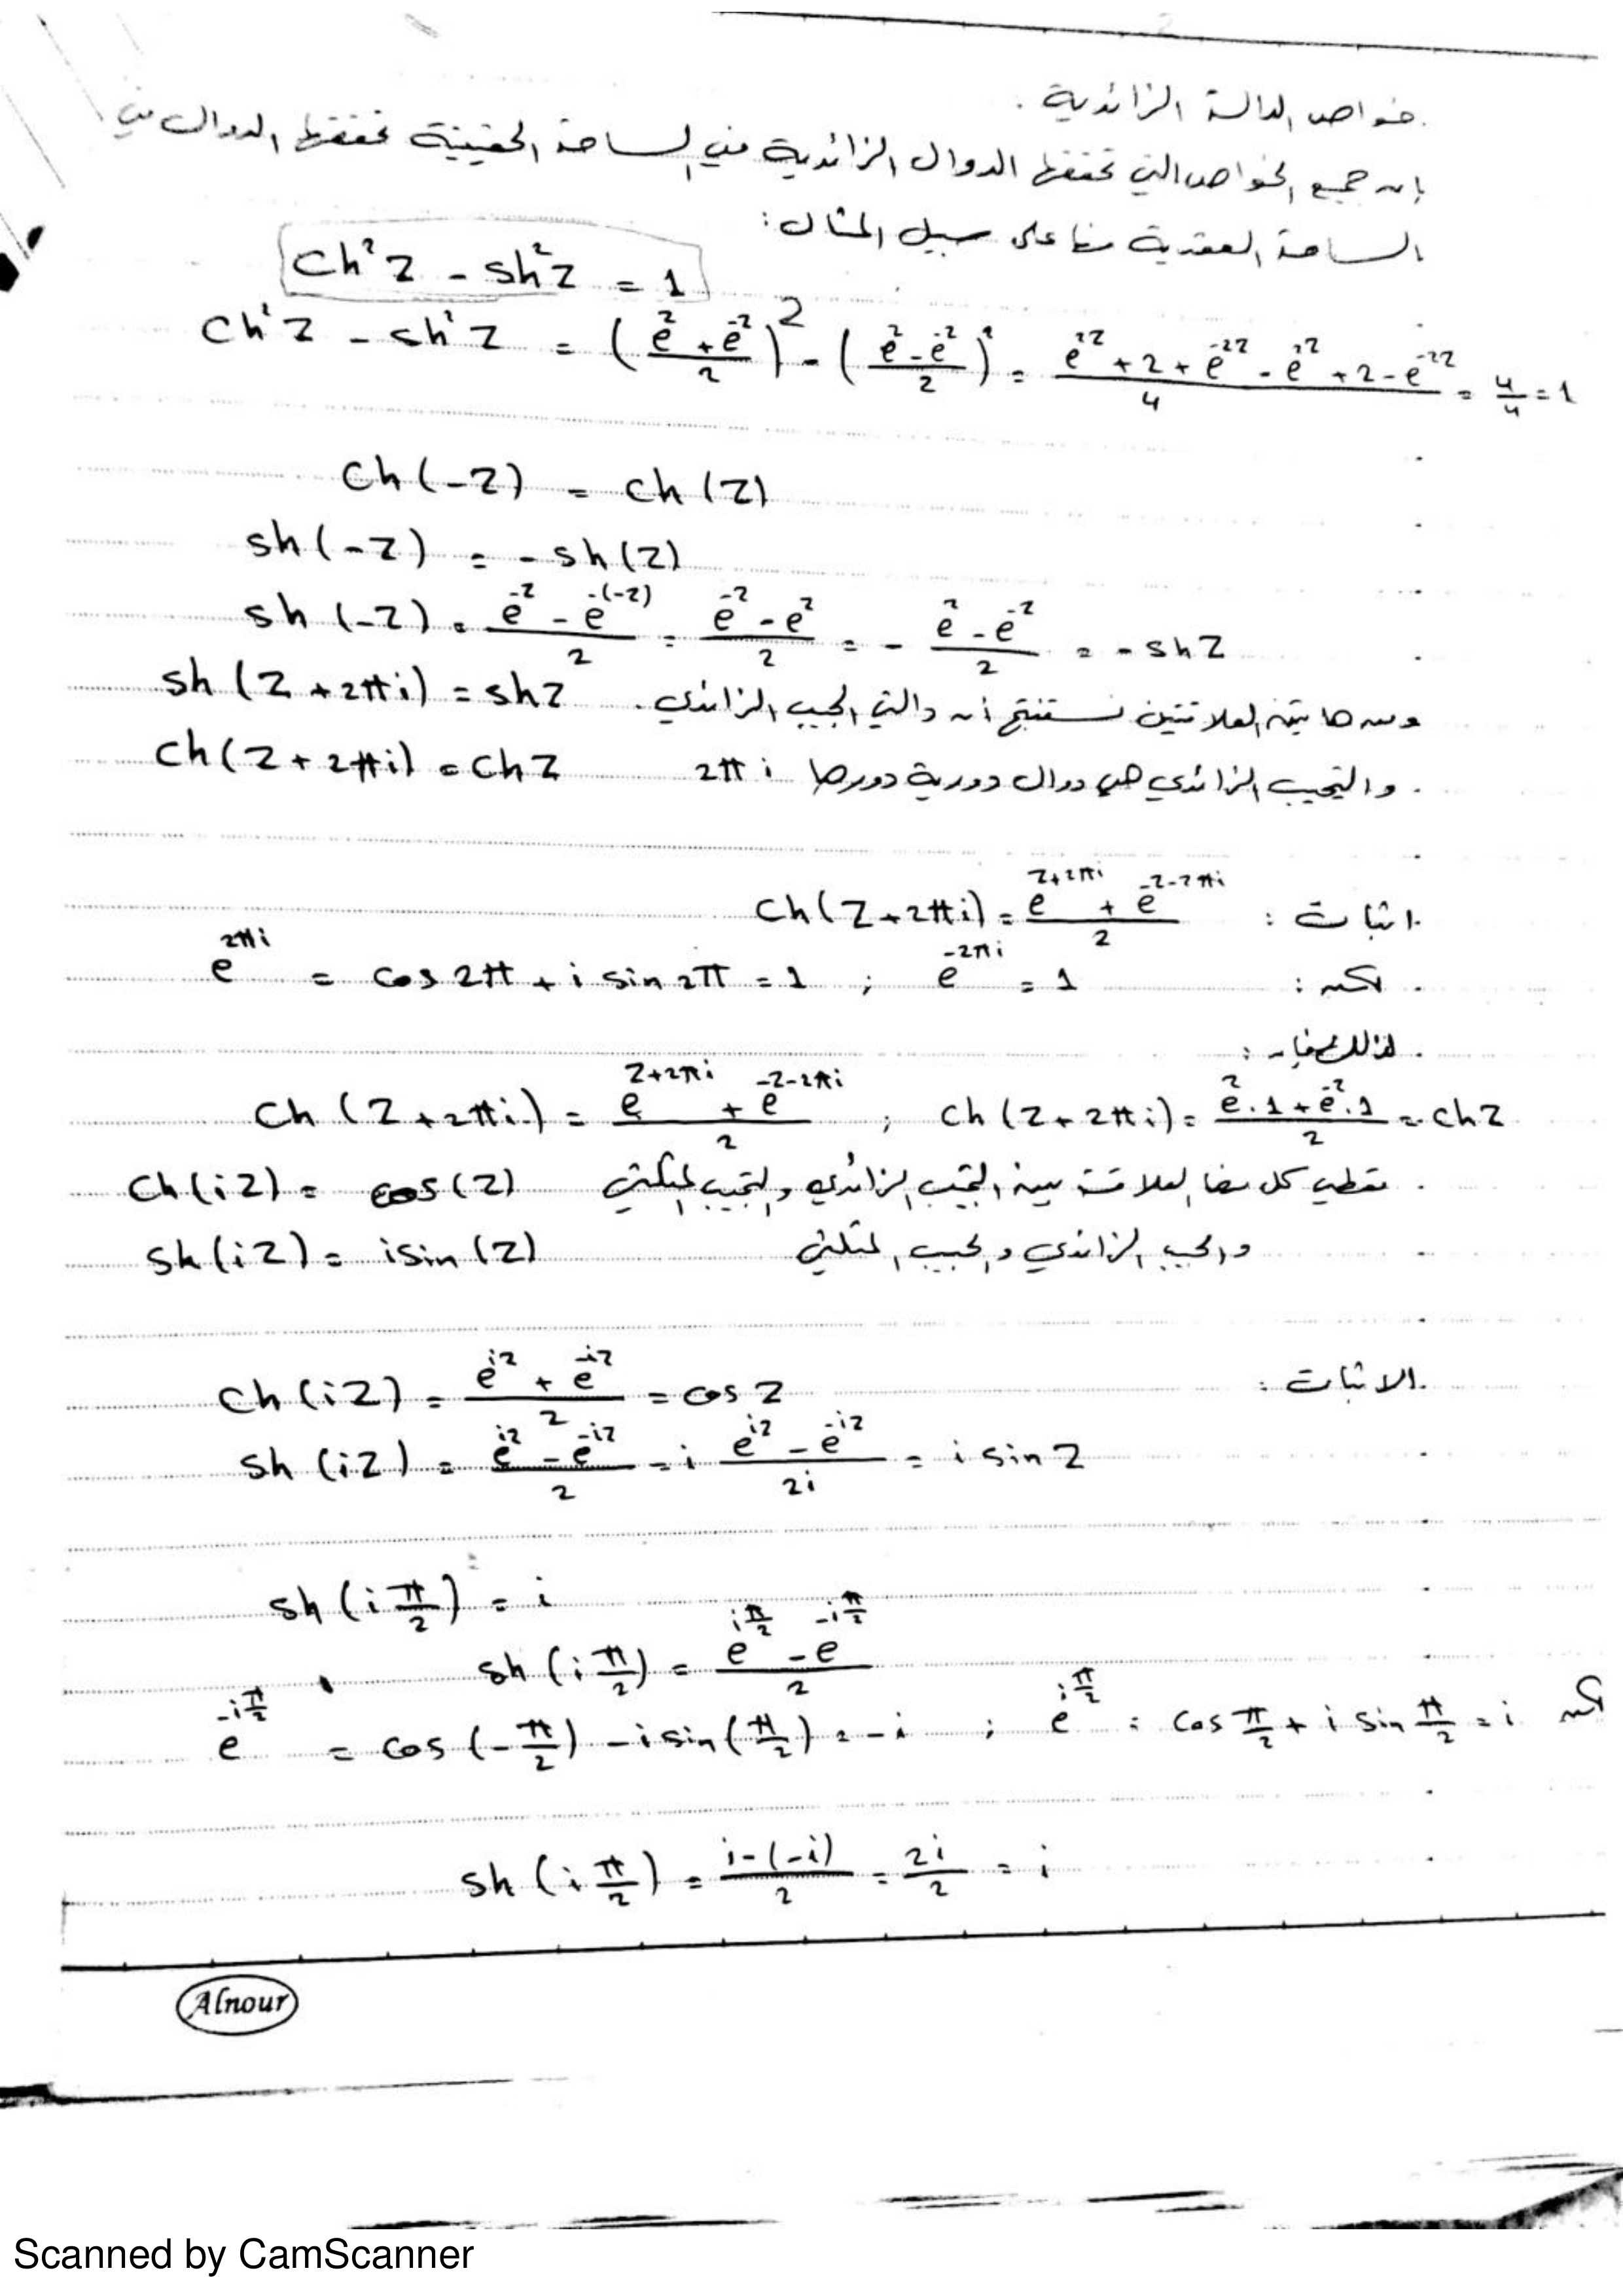 خواص الدالة الزائدية .
إن جميع الخواص التي تحققها الدوال الزائدية في الساحة الحقيقية تحققها الدوال في
الساحة العقدية منها على سبيل المثال:
ch²z - sh²z = 1
ch²z - sh²z = ((e^z + e^-z)/2)² - ((e^z - e^-z)/2)² = (e^2z + 2 + e^-2z - e^2z + 2 - e^-2z)/4 = 4/4 = 1
ch(-z) = ch(z)
sh(-z) = -sh(z)
sh(-z) = (e^-z - e^-(-z))/2 = (e^-z - e^z)/2 = - (e^z - e^-z)/2 = -shz
sh(z + 2πi) = shz ومن هاتين العلاقتين نستنتج أن دالتي الجيب الزائدي .
ch(z + 2πi) = chz والتجيب الزائدي هي دوال دورية دورها 2πi
اثبات : ch(z + 2πi) = (e^(z+2πi) + e^(-z-2πi))/2
لكن : e^2πi = cos2π + i sin2π = 1 ; e^-2πi = 1
لذلك فإن :
ch(z + 2πi) = (e^(z+2πi) + e^(-z-2πi))/2 ; ch(z + 2πi) = (e^z.1 + e^-z.1)/2 = chz
تعطى كل منها العلاقة بين التجيب الزائدي والتجيب المثلثي ch(iz) = cos(z)
والجيب الزائدي والجيب المثلثي sh(iz) = isin(z)
الاثبات : ch(iz) = (e^iz + e^-iz)/2 = cosz
sh(iz) = (e^iz - e^-iz)/2 = i (e^iz - e^-iz)/2i = i sinz
sh(i π/2) = i
sh(i π/2) = (e^(iπ/2) - e^(-iπ/2))/2
لكن e^(iπ/2) = cos π/2 + i sin π/2 = i ; e^(-iπ/2) = cos(-π/2) - isin(π/2) = -i
sh(i π/2) = (i-(-i))/2 = 2i/2 = i
Alnour
Scanned by CamScanner